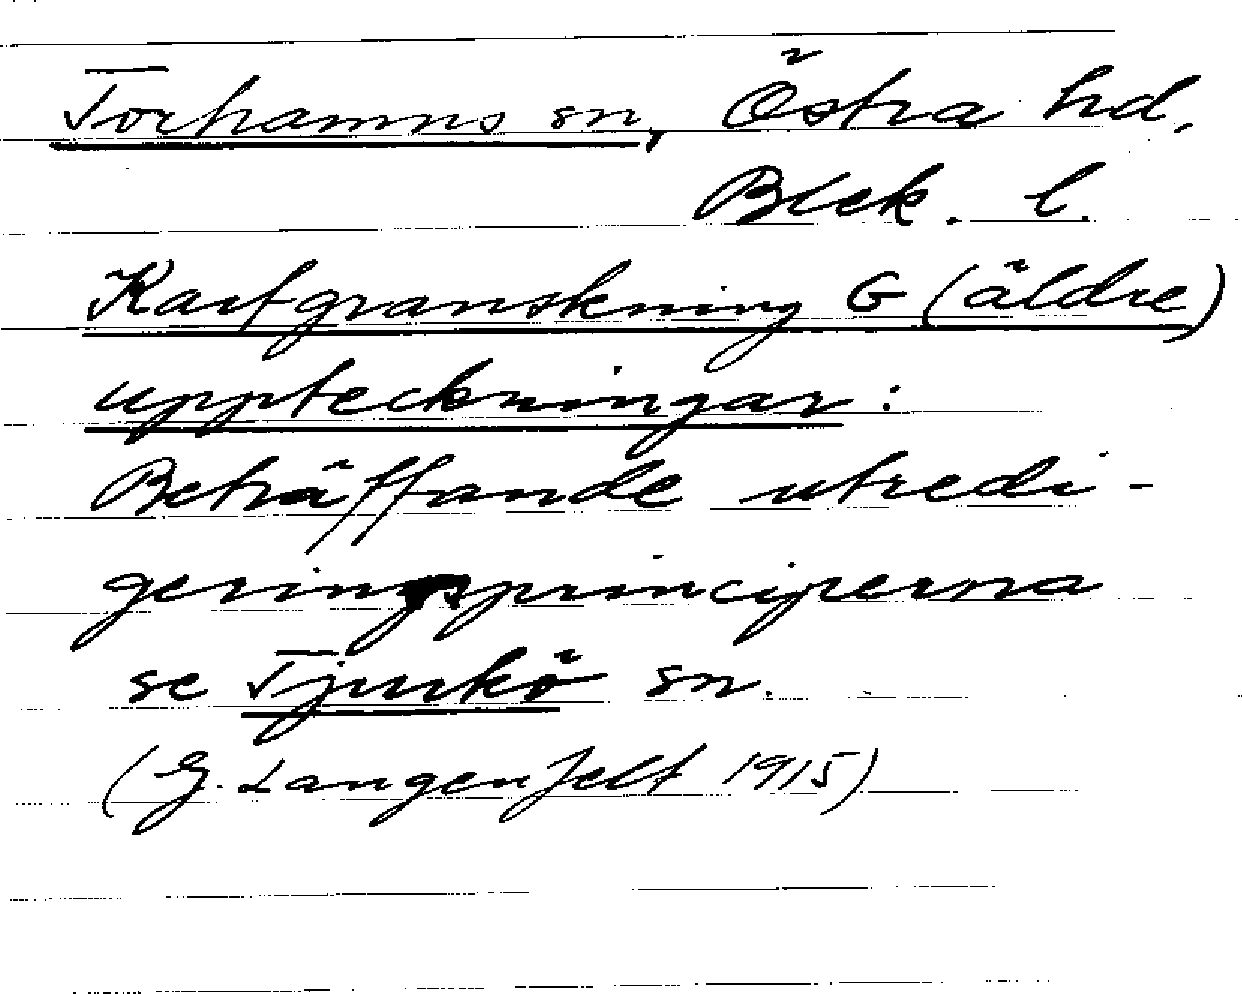 Torhamns sn, Östra hd,
Blek. l.
Kartgranskning G (äldre)
uppteckningar:
Beträffande utredi-
geringsprinciperna
se Tjurkö sn.
(G. Langenfelt 1915)